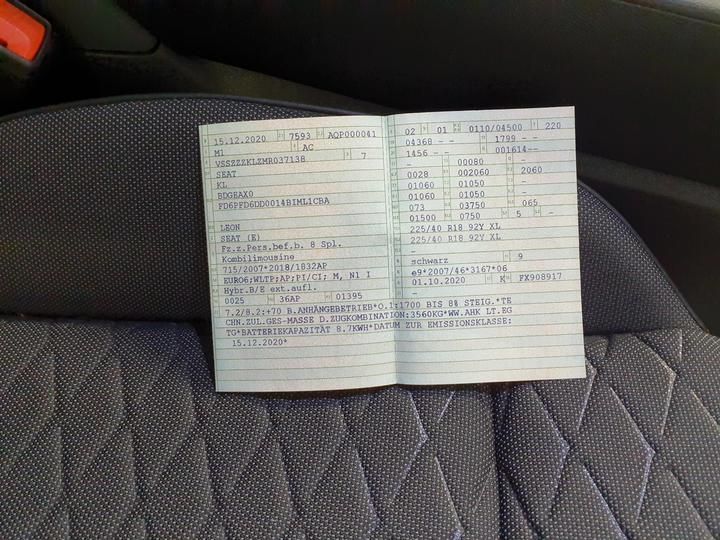 15.12.2020 7593 AQP000041
M1 AC
VSSZZZKLZMR037138 7
SEAT
KL
BDGEAX0
FD6PFD6DD0014BIML1CBA
LEON
SEAT (E)
Fz.z.Pers.bef.b. 8 Spl.
Kombilimousine
715/2007*2018/1832AP
EURO6;WLTP;AP;PI/CI; M, N1 I
Hybr.B/E ext.aufl.
0025 36AP 01395
02 01 0110/04500 220
04368 - - 1799 - -
1456 - - 001614--
- 00080 -
0028 002060 2060
01060 01050 -
01060 01050 -
073 03750 065
01500 0750 5 -
225/40 R18 92Y XL
225/40 R18 92Y XL
-
schwarz 9
e9*2007/46*3167*06
01.10.2020 K FX908917
-
7.2/8.2:+70 B.ANHÄNGEBETRIEB*O.1:1700 BIS 8% STEIG.*TE
CHN.ZUL.GES-MASSE D.ZUGKOMBINATION:3560KG*WW.AHK LT.EG
TG*BATTERIEKAPAZITÄT 8.7KWH*DATUM ZUR EMISSIONSKLASSE:
15.12.2020*